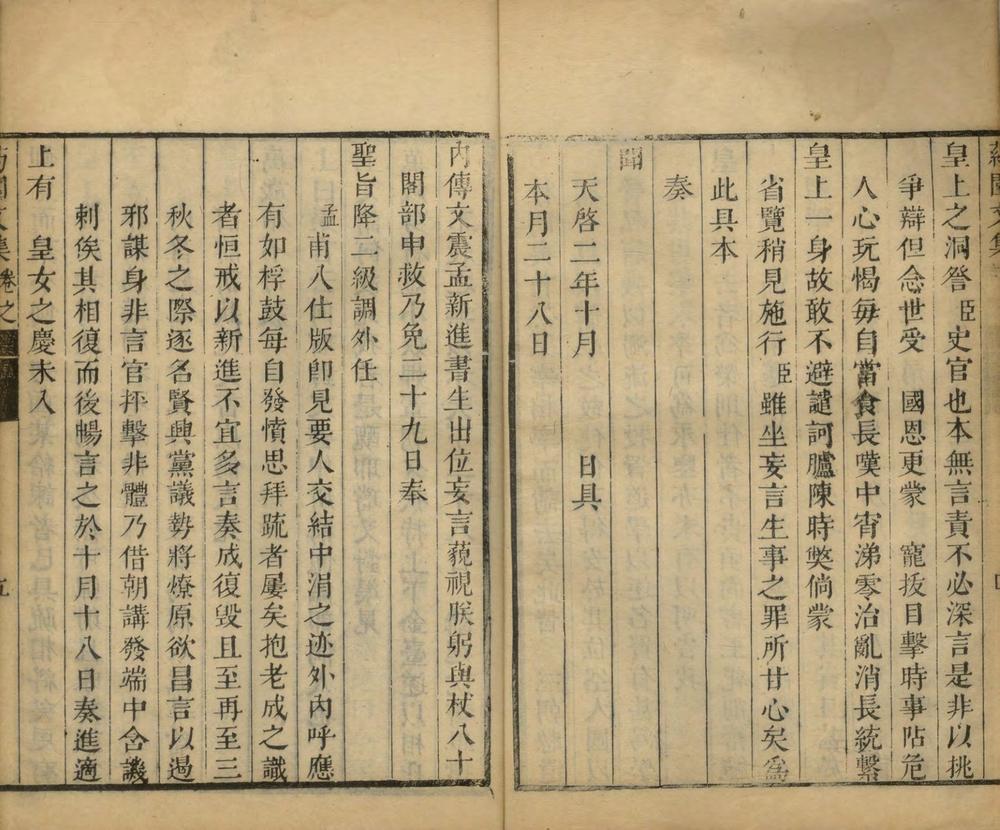 皇上之洞詧臣史官也本無言責不必深言是非以挑
爭辯但念世受　國恩更蒙　寵拔目擊時事阽危
人心玩愒每自當食長嘆中宵涕零治亂消長統繫
皇上一身故敢不避譴訶臚陳時獘倘蒙
省覽稍見施行臣雖坐妄言生事之罪所甘心矣爲
此具本
奏
聞
天啓二年十月　　日具
本月二十八日
內傳文震孟新進書生出位妄言藐視朕躬與杖八十
閣部申救乃免二十九日奉
聖旨降二級調外任
孟甫入仕版卽見要人交結中涓之迹外內呼應
有如桴鼓每自發憤思拜疏者屢矣抱老成之識
者恒戒以新進不宜多言奏成復毀且至再至三
秋冬之際逐名賢興黨議勢將燎原欲昌言以遏
邪謀身非言官抨擊非體乃借朝講發端中含譏
刺俟其相復而後暢言之於十月十八日奏進適
上有　皇女之慶未入
文集 卷之
五